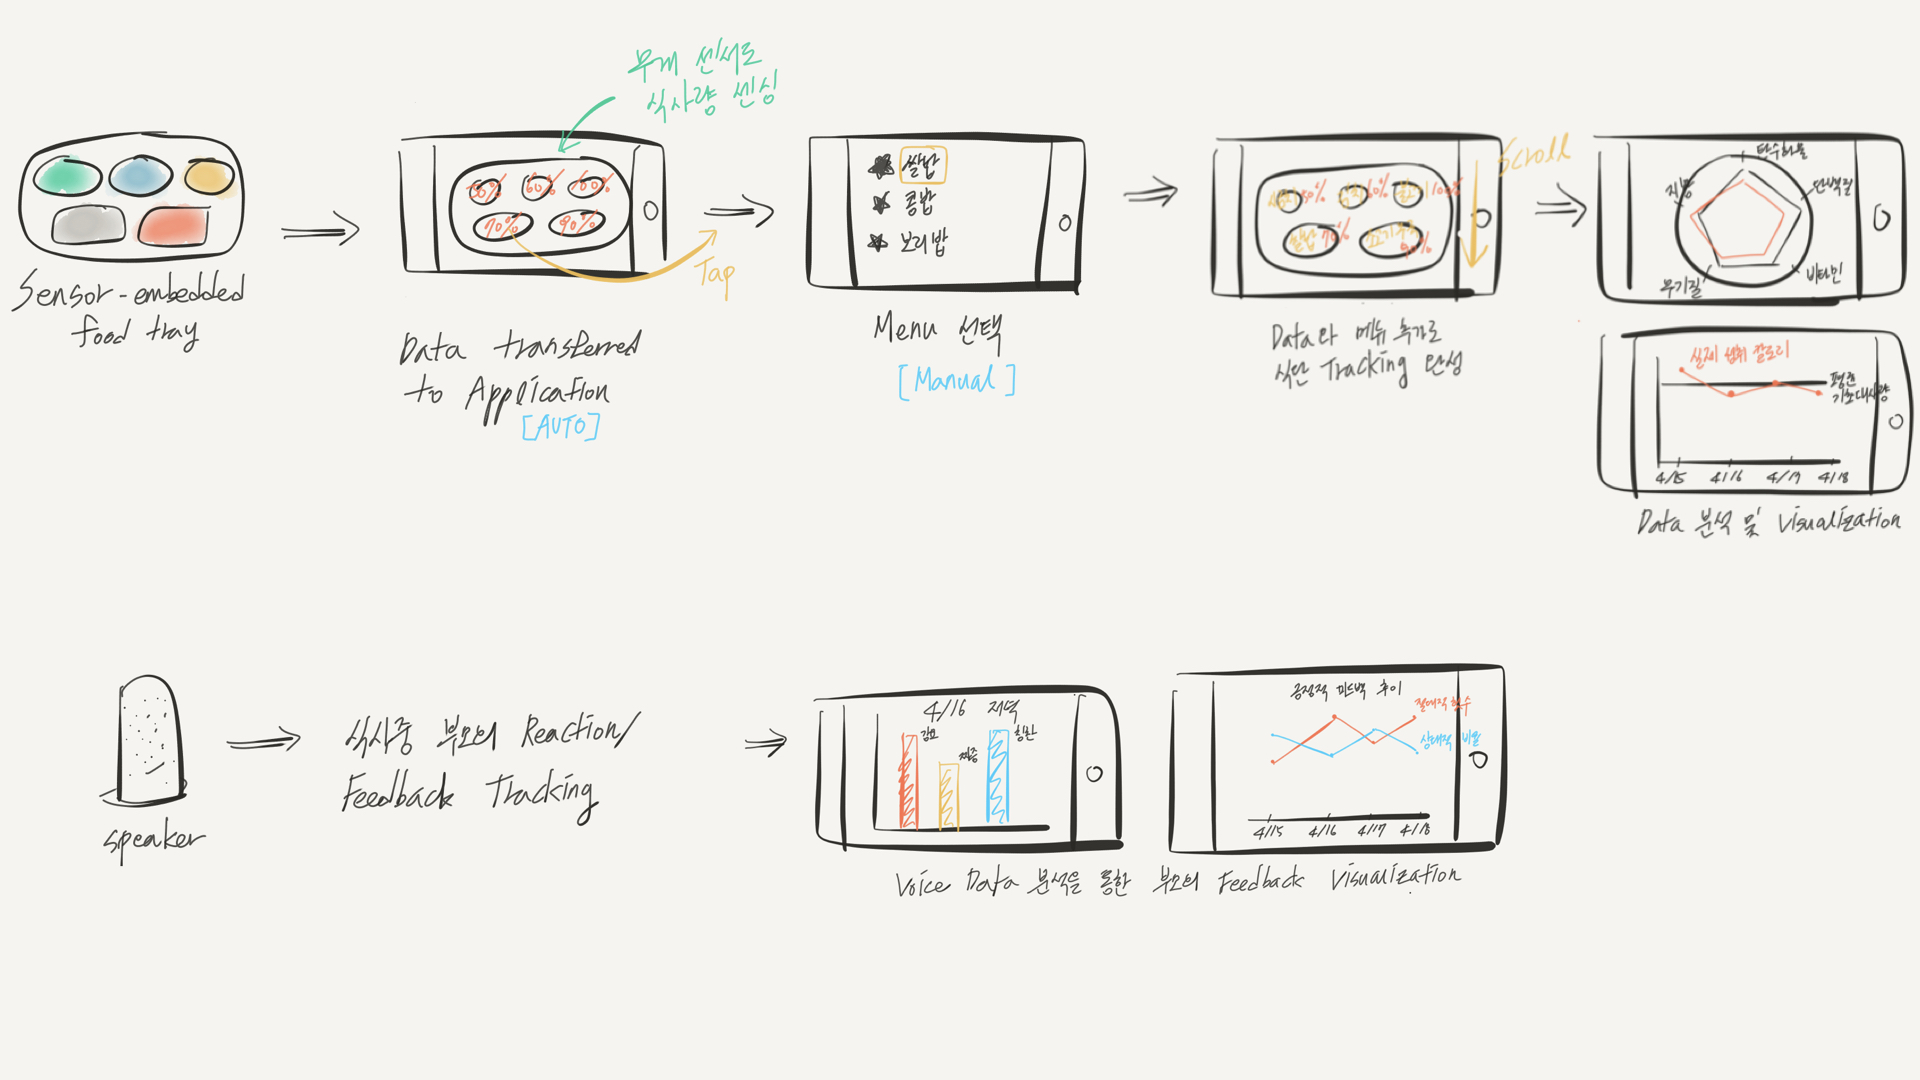 무게 센서로
식사량 센싱
Sensor-embedded
food tray
50% 60% 100%
70% 90%
Tap
Data transferred
to Application
[AUTO]
쌀밥
콩밥
보리밥
Menu 선택
[Manual]
Scroll
50% 60% 100%
쌀밥 70% 90%
Data와 메뉴 추가로
식단 Tracking 완성
탄수화물
지방
단백질
무기질
비타민
실제 섭취 칼로리
평균
기초대사량
4/15 4/16 4/17 4/18
Data 분석 및 Visualization
speaker
식사중 부모의 Reaction/
Feedback Tracking
4/16 저녁
강요
짜증
칭찬
긍정적 피드백 추이
절대적 횟수
상대적 비율
4/15 4/16 4/17 4/18
Voice Data 분석을 통한 부모의 Feedback Visualization